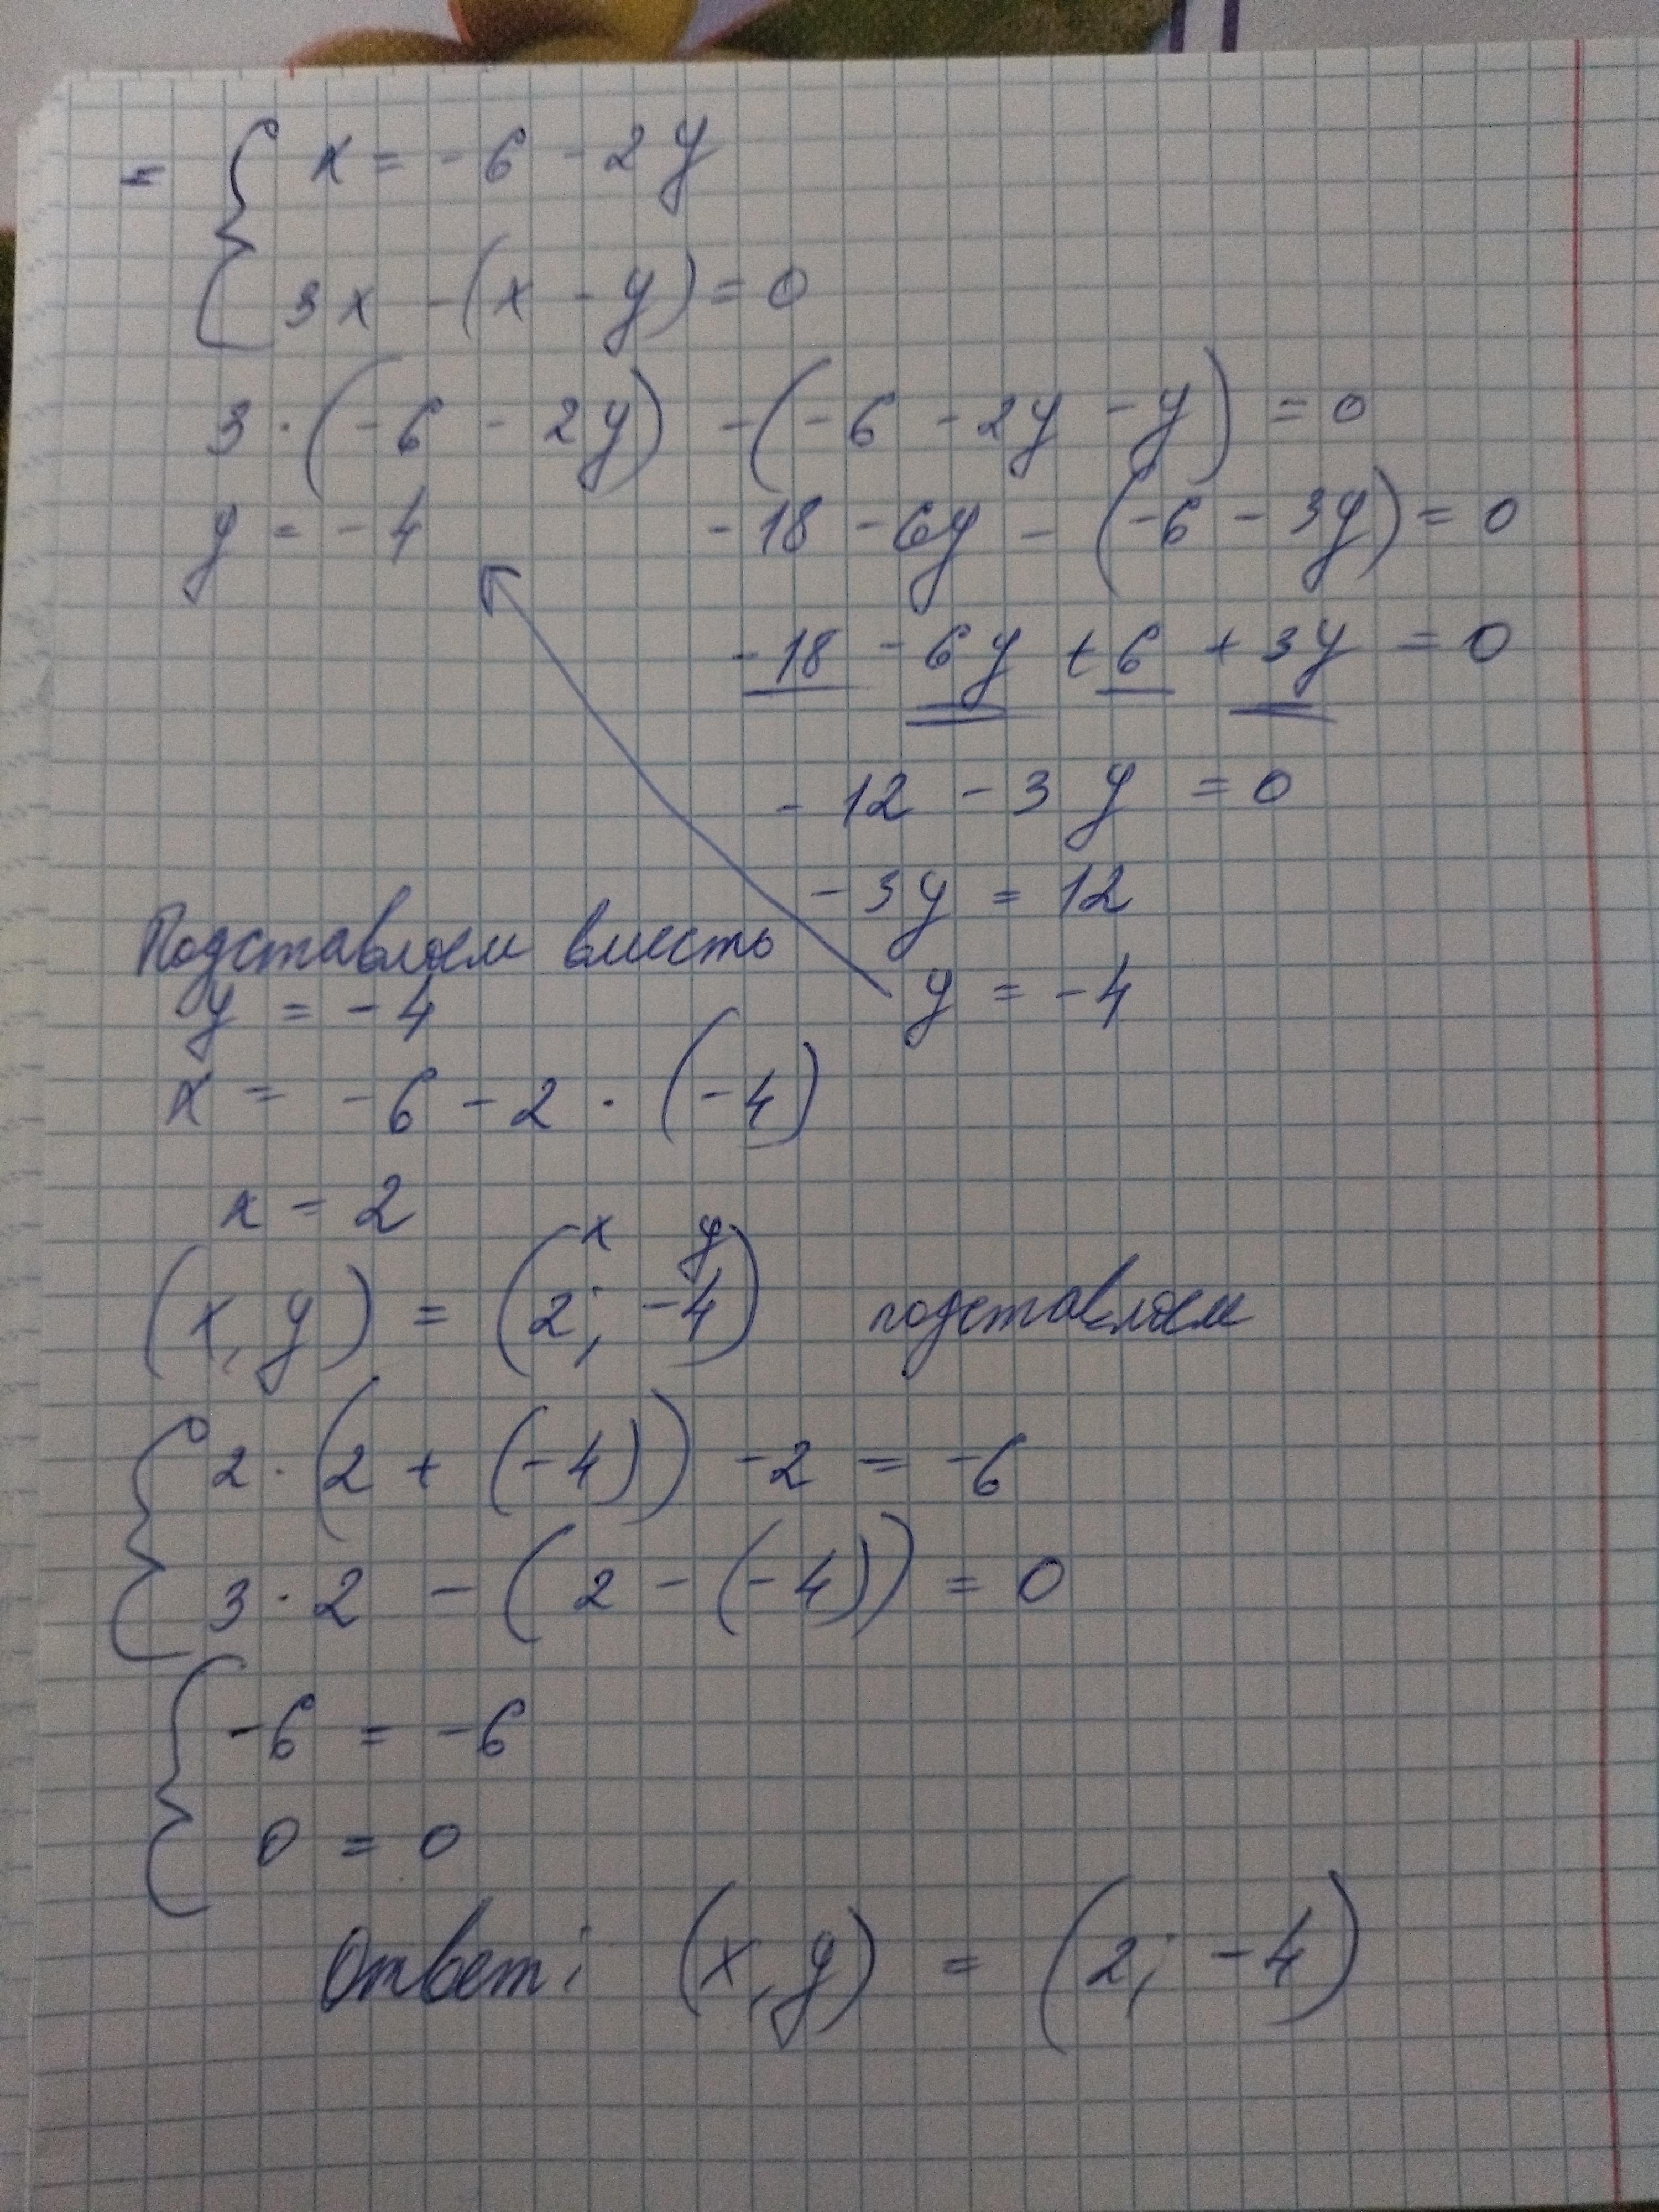 = { x = -6 - 2y
3x - (x - y) = 0
3 · (-6 - 2y) - (-6 - 2y - y) = 0
y = -4
-18 - 6y - (-6 - 3y) = 0
-18 - 6y + 6 + 3y = 0
-12 - 3y = 0
-3y = 12
y = -4
Подставляем вместо
y = -4
x = -6 - 2 · (-4)
x = 2
x y
(x, y) = (2; -4) подставляем
{ 2 · (2 + (-4)) - 2 = -6
3 · 2 - (2 - (-4)) = 0
{ -6 = -6
0 = 0
Ответ: (x, y) = (2; -4)